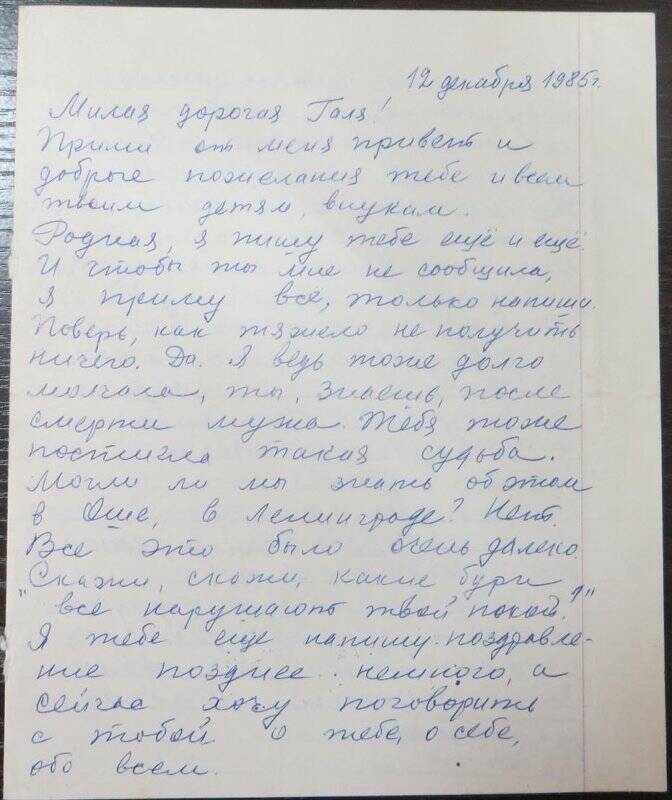 12 декабря 1985г.
Милая дорогая Галя!
Прими от меня привет и
добрые пожелания тебе и всем
твоим детям, внукам.
Родная, я пишу тебе ещё и ещё.
И чтобы ты мне не сообщила,
я приму всё, только напиши.
Поверь, как тяжело не получить
ничего. Да. Я ведь тоже долго
молчала, ты, знаешь, после
смерти мужа. Тебя тоже
постигла такая судьба.
Могли ли мы знать об этом
в Оше, в Ленинграде? Нет.
Все это было очень далеко.
"Скажи, скажи, какие бури
все нарушают твой покой?"
Я тебе еще напишу поздравле-
ние позднее немного, а
сейчас хочу поговорить
с тобой о тебе, о себе,
обо всем.